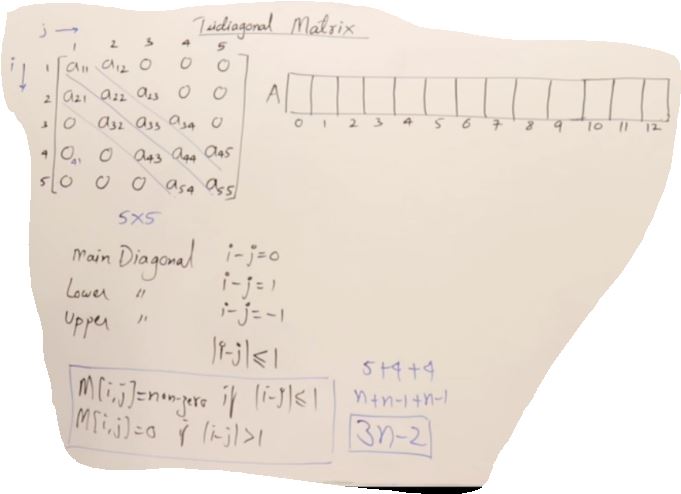 Tridiagonal Matrix
j →
1 2 3 4 5
i ↓
1 a11 a12 0 0 0
2 a21 a22 a23 0 0
3 0 a32 a33 a34 0
4 0 41 0 a43 a44 a45
5 0 0 0 a54 a55
5×5
A
0 1 2 3 4 5 6 7 8 9 10 11 12
Main Diagonal i-j=0
Lower " i-j=1
Upper " i-j=-1
|i-j|≤1
M[i,j]=non-zero if |i-j|≤1
M[i,j]=0 if |i-j|>1
5+4+4
n+n-1+n-1
3n-2